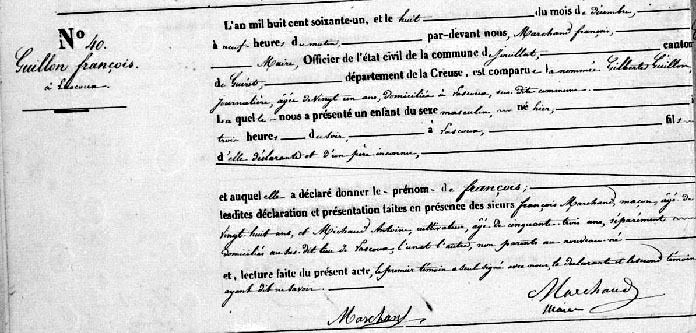 N° 40.
Guillon françois.
à Lascoux
L'an mil huit cent soixante-un, et le huit du mois de décembre,
à neuf heures du matin, par-devant nous, Marchand françois,
Maire, Officier de l'état civil de la commune d'Jouillat, canton
de Guéret, département de la Creuse, est comparue la nommée Gilberte Guillon,
journalière, âgée de vingt un ans, domiciliée à Lascoux, sus dite commune
La quelle nous a présenté un enfant du sexe masculin, né hier,
trois heures du soir, à Lascoux, fils
d'elle déclarante et d'un père inconnu,
et auquel elle a déclaré donner le prénom de françois;
lesdites déclaration et présentation faites en présence des sieurs françois Marchand, maçon, âgé de
vingt huit ans, et Michaud Antoine, cultivateur, âgé de cinquante-trois ans, séparément
domiciliés au sus dit lieu de Lascoux, l'un et l'autre, non parents au nouveau né
et, lecture faite du présent acte, le premier témoin a seul signé avec nous, le déclarante et le second témoin
ayant dit ne savoir.
Marchand Marchaud
Maire